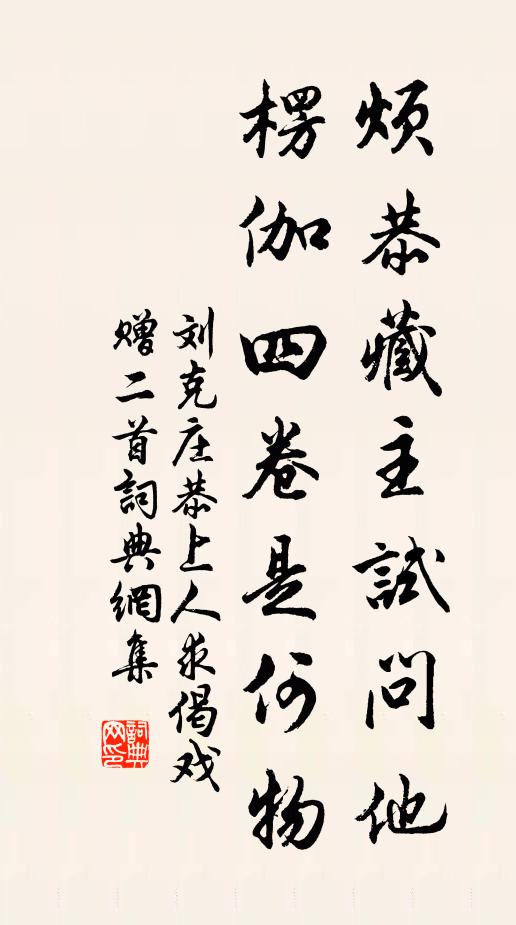 烦恭藏主試問他
楞伽四卷是何物
刘克庄恭上人求偈戏
赠二首詞典網集
詞典网印